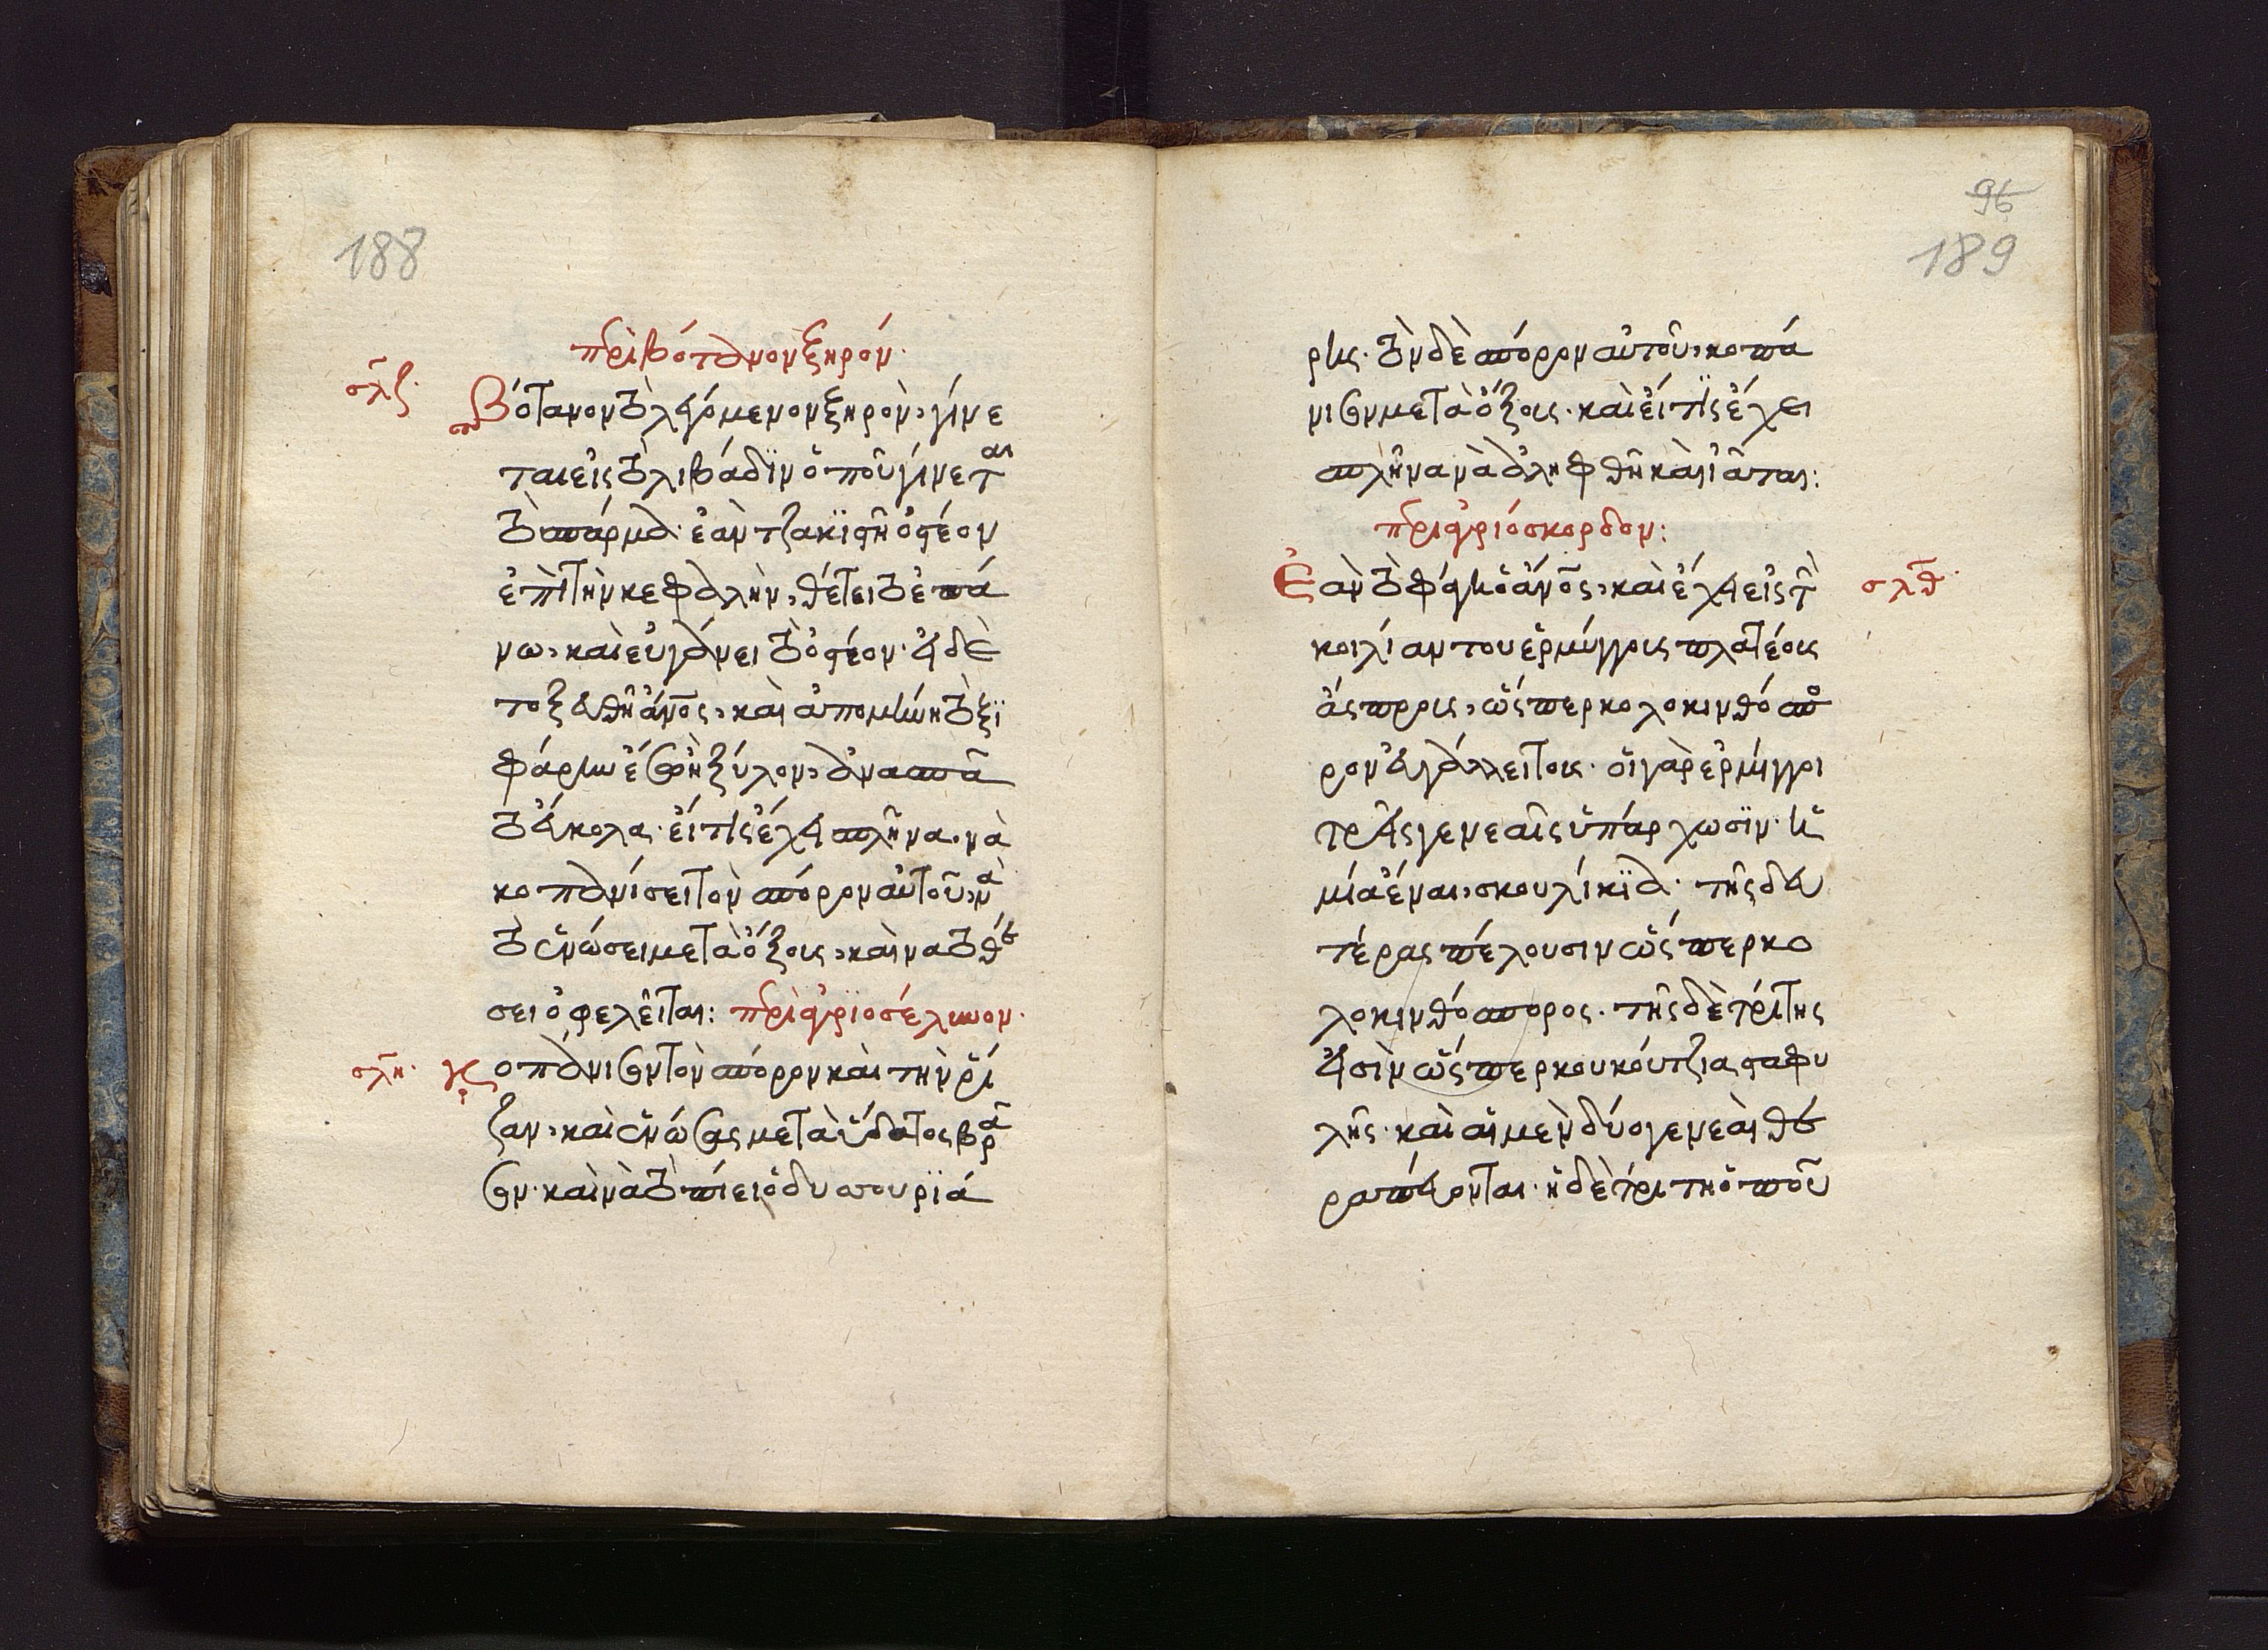 188
περὶ βότανον ξηρόν·
σλζ·
Βότανον τὸ λεγόμενον ξηρὸν, γίνε
ται εἰς τὸ λιβάδϊν ὁποῦ γίνεται
τὸ σπάρμα· ἐὰν τζακϊστῆ ὀστέον
ἐπὶ τὴν κεφαλὴν, θέτει τὸ ἐπά
νω, καὶ εὐγάνει τὸ ὀστέον· εἰ δὲ
τοξευθῆ ἄνος, καὶ ἀπομείνη τὸ ξϊ
φάριν ἔσω ἢ ξύλον, ἀνασπᾶ
το εὔκολα· εἴ τις ἔχει σπλῆνα, νὰ
κοπανίσει τὸν σπόρον αὐτοῦ, νὰ
τὸ ἑνώσει μετὰ ὄξους, καὶ να το θέ
σει ὀφελεῖται: περὶ ἀγρϊοσέλινον·
σλη· Κοπάνισον τὸν σπόρον καὶ τὴν ῥί
ζαν, καὶ ἑνώσας μετὰ ὕδατος βρά
σον· καὶ νὰ τὸ πίει ὁ δυσουρϊά
96
189
ρης· τὸν δὲ σπόρον αὐτοῦ, κοπά
νισον μετὰ ὄξους· καὶ εἴ τις ἔχει
σπλῆνα νὰ ἀληφθῆ καὶ ἰᾶται:
περὶ ἀγριόσκορδον:
Ἐὰν τὸ φάγη ὁ ἄνος, καὶ ἔχει εἰς τὴν σλθ·
κοιλίαν του ἑρμίγγους πλατέους
ἄσπρους, ὥσπερ κολοκινθόσπο
ρον εὐγάλλει τους· οἱ γὰρ ἑρμίγγοι
τρεῖς γενεαῖς ὑπάρχωσϊν· ἡ
μία ἔναι, σκουλίκϊα· τῆς δευ
τέρας πέλουσιν ὥσπερ κο
λοκινθόσπορος· τῆς δὲ τρίτης
εἰσὶν ὥσπερ κουκούτζια σταφυ
λῆς· καὶ αἱ μὲν δύο γενεαὶ θε
ραπεύονται· ἡ δὲ τρίτη ὁποῦ